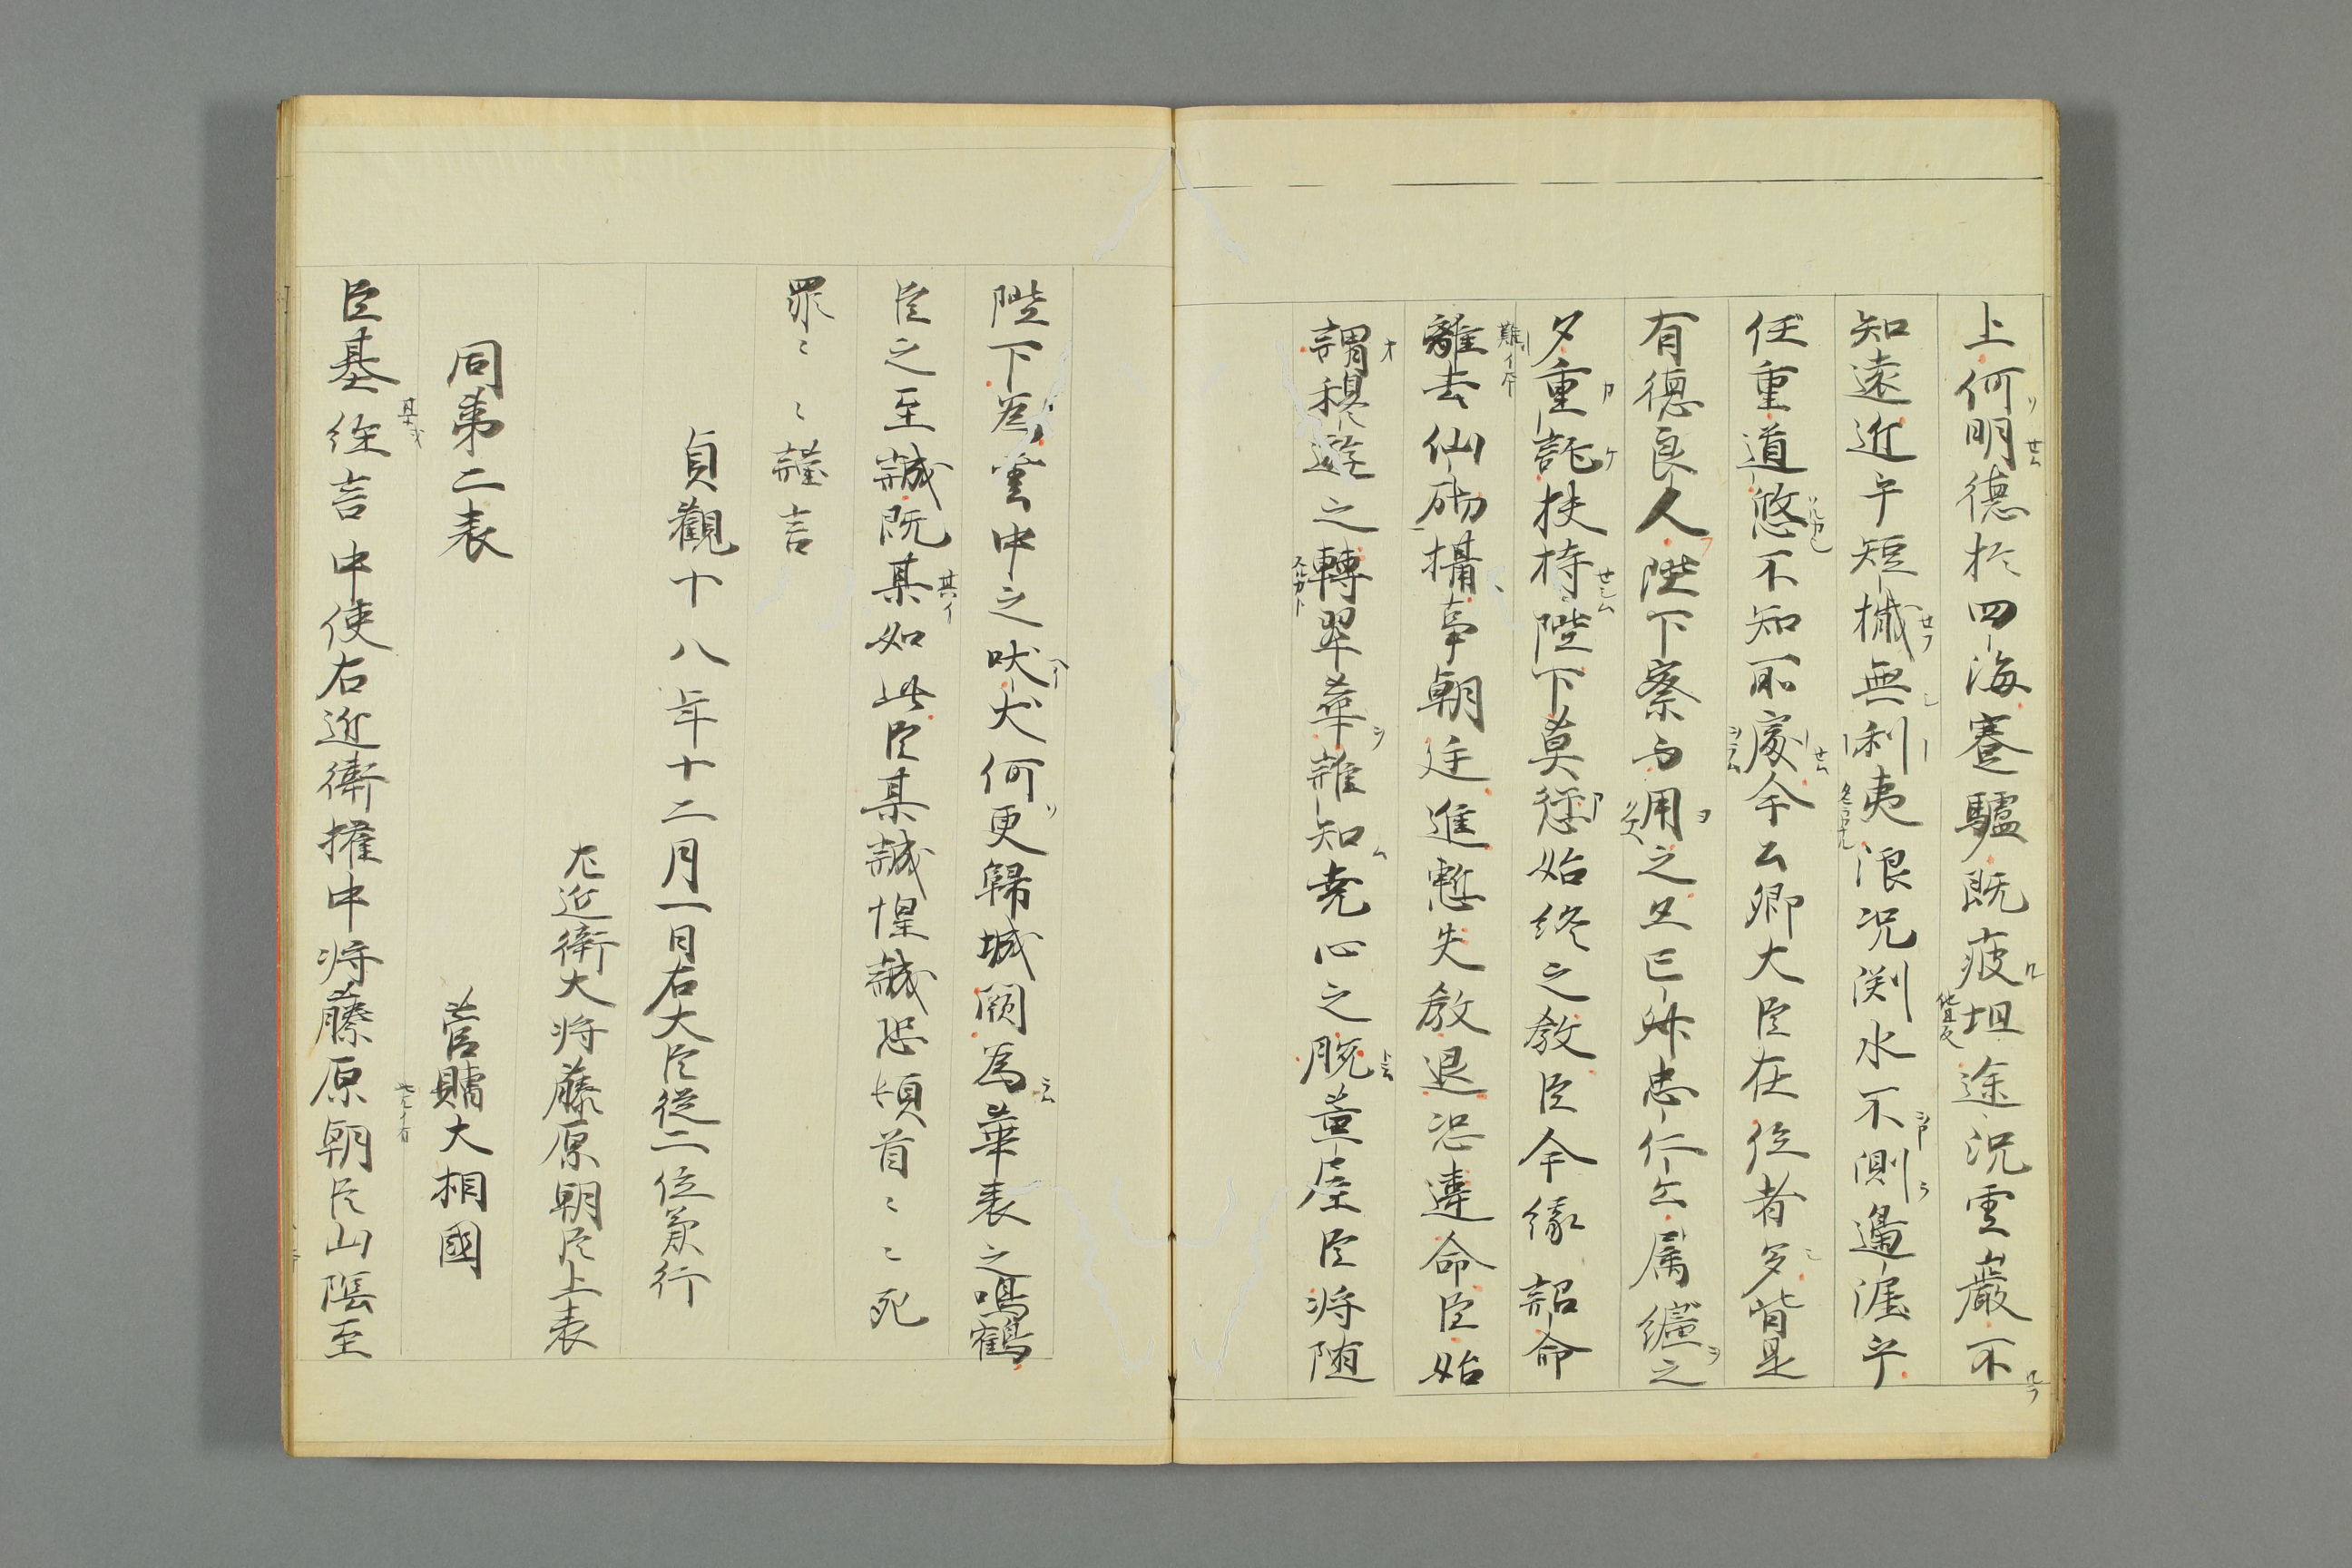 上何明德於四海蹇驢既疲坦途況雲巖不
知遠近乎短檝無利夷浪況渕水不測邊涯乎
任重道悠不知所處今公卿大臣在位者多皆是
有德良人陛下察而用之且已舛忠仁公属纊之
夕重託扶持陛下莫愆始終之教臣今緣詔命
離去仙砌攝亭朝廷進慙失教退恐違命臣始
謂穆遊之轉翠華誰知堯心之脱黃屋臣将随
陛下為雲中之吠犬何更歸城闕為華表之鳴鶴
臣之至誠既某如此臣某誠惶誠恐頓首ミミ死
罪ミミ謹言
貞觀十八年十二月一日右大臣從二位兼行
左近衛大将藤原朝臣上表
同第二表
菅贈大相國
臣基経言中使右近衛權中将藤原朝臣山陰至